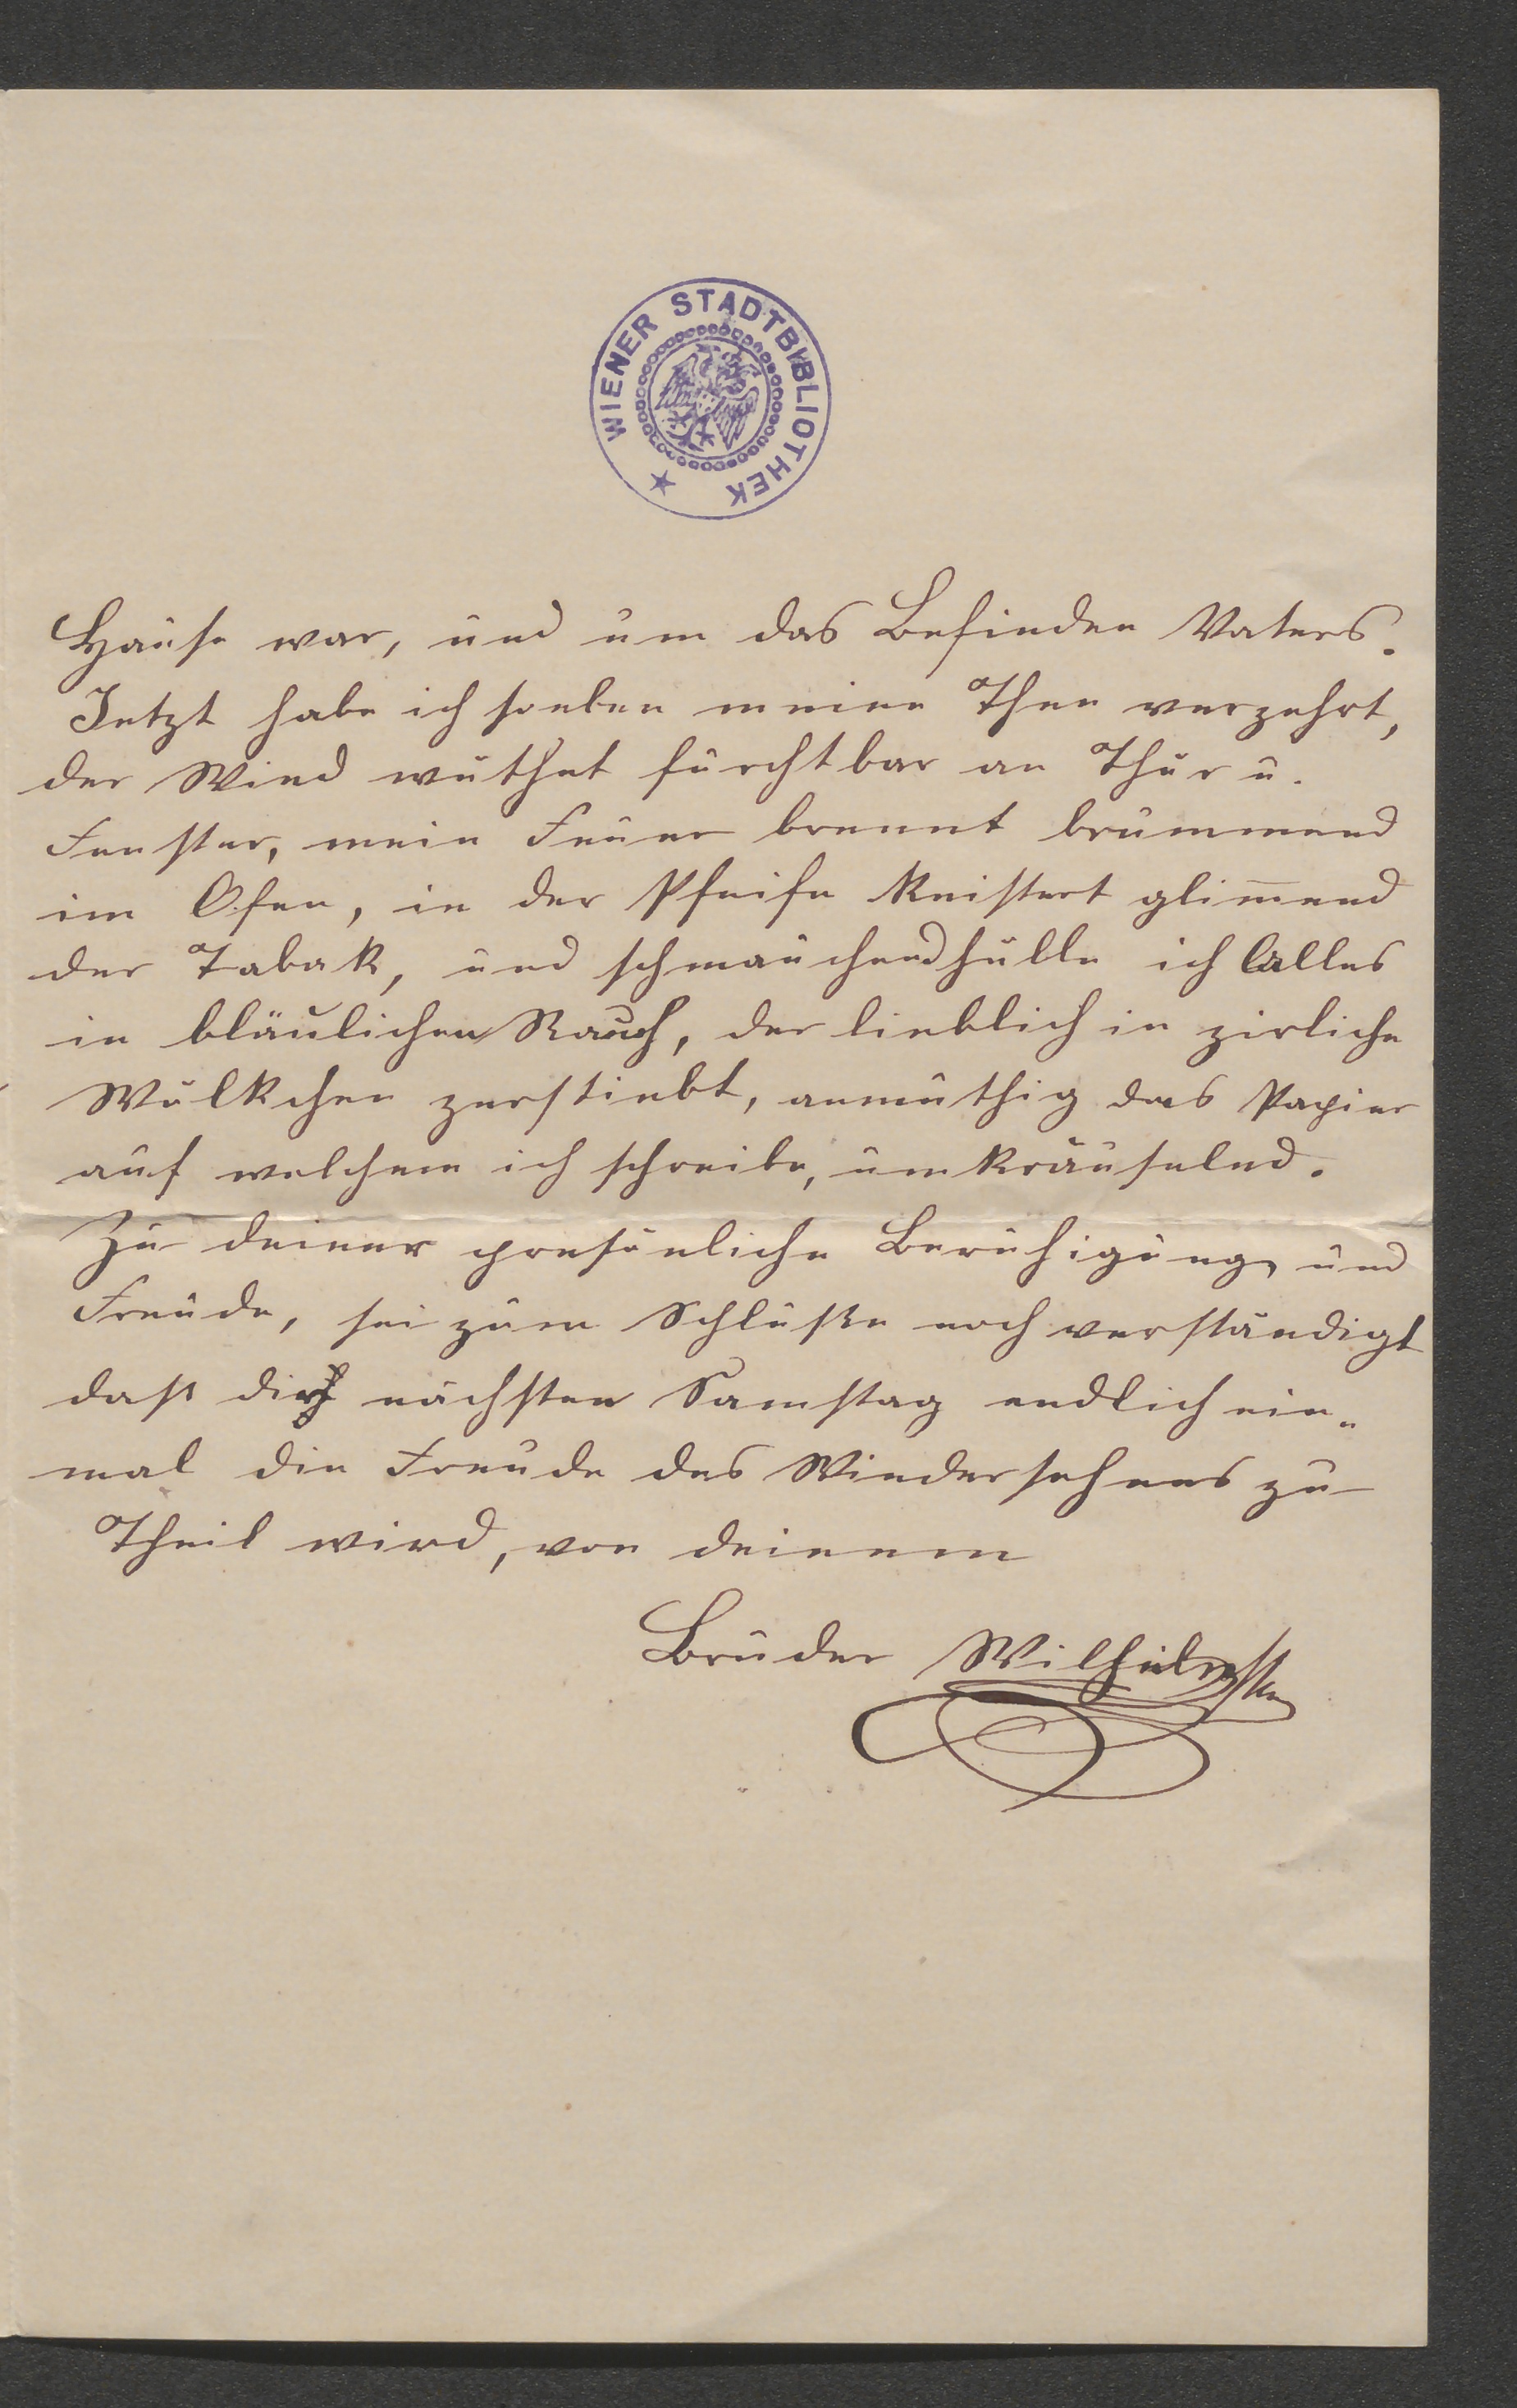 WIENER STADTBIBLIOTHEK
Hause war, und um das Befinden Vaters.
Jetzt habe ich soeben meinen Thee verzehrt,
der Wind wüthet furchtbar an Thür u.
Fenster, mein Feuer brennt brummend
im Ofen, in der Pfeife knistert glim̅end
der Tabak, und schmauchend hülle ich Alles
in bläulichen Rauch, der lieblich in zirliche
Wölkchen zerstiebt, anmuthig das Papier
auf welchem ich schreibe, umkräuselnd.
Zu deiner presönliche Beruhigung und
Freude, sei zum Schluße noch verständigt
daß dir nächsten Samstag endlich ein„
mal die Freude des Wiedersehens zu
Theil wird, von deinem
Bruder Wilhelm